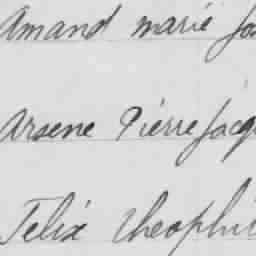 Amand marie Jos
Arsene Pierre Jacq
Felix theophi